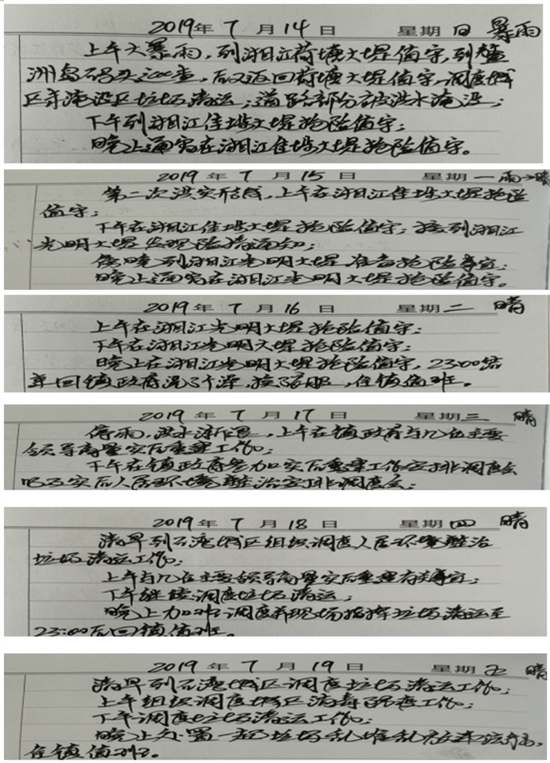 2019年 7月 14日 星期日 暴雨
上午大暴雨，到湘江荷塘大堤值守，到鳌
洲岛码头巡查，后又返回荷塘大堤值守，调度城
区未淹没区垃圾清运；道路部分被洪水淹没；
下午到湘江佳塅大堤抢险值守；
晚上通宵在湘江佳塅大堤抢险值守。
2019年 7月 15日 星期一 雨→晴
第二次洪灾形成，上午在湘江佳塅大堤抢险
值守；
下午在湘江佳塅大堤抢险值守；接到湘江
光明大堤出现险情通知；
傍晚到湘江光明大堤，准备抢险事宜；
晚上通宵在湘江光明大堤抢险值守。
2019年 7月 16日 星期二 晴
上午在湘江光明大堤抢险值守；
下午在湘江光明大堤抢险值守；
晚上在湘江光明大堤抢险值守，23:00
回镇政府洗了澡，换衣服，住镇值班。
2019年 7月 17日 星期三 晴
停雨，洪水渐退，上午在镇政府与几位主要
领导商量灾后重建工作；
下午在镇政府参加灾后重建工作安排调度会
灾后人居环境整治安排调度会；
2019年 7月 18日 星期四 晴
清早到石湾城区组织调度人居环境整治
垃圾清运工作；
上午与几位主要领导商量灾后重建有关事宜；
下午继续调度垃圾清运；
晚上加班调度和现场指挥垃圾清运至
23:00后回镇值班。
2019年 7月 19日 星期五 晴
清早到石湾城区调度垃圾清运工作；
上午组织调度城区消毒防疫工作；
下午调度垃圾清运工作；
晚上处置一起垃圾乱堆乱放
住镇值班。